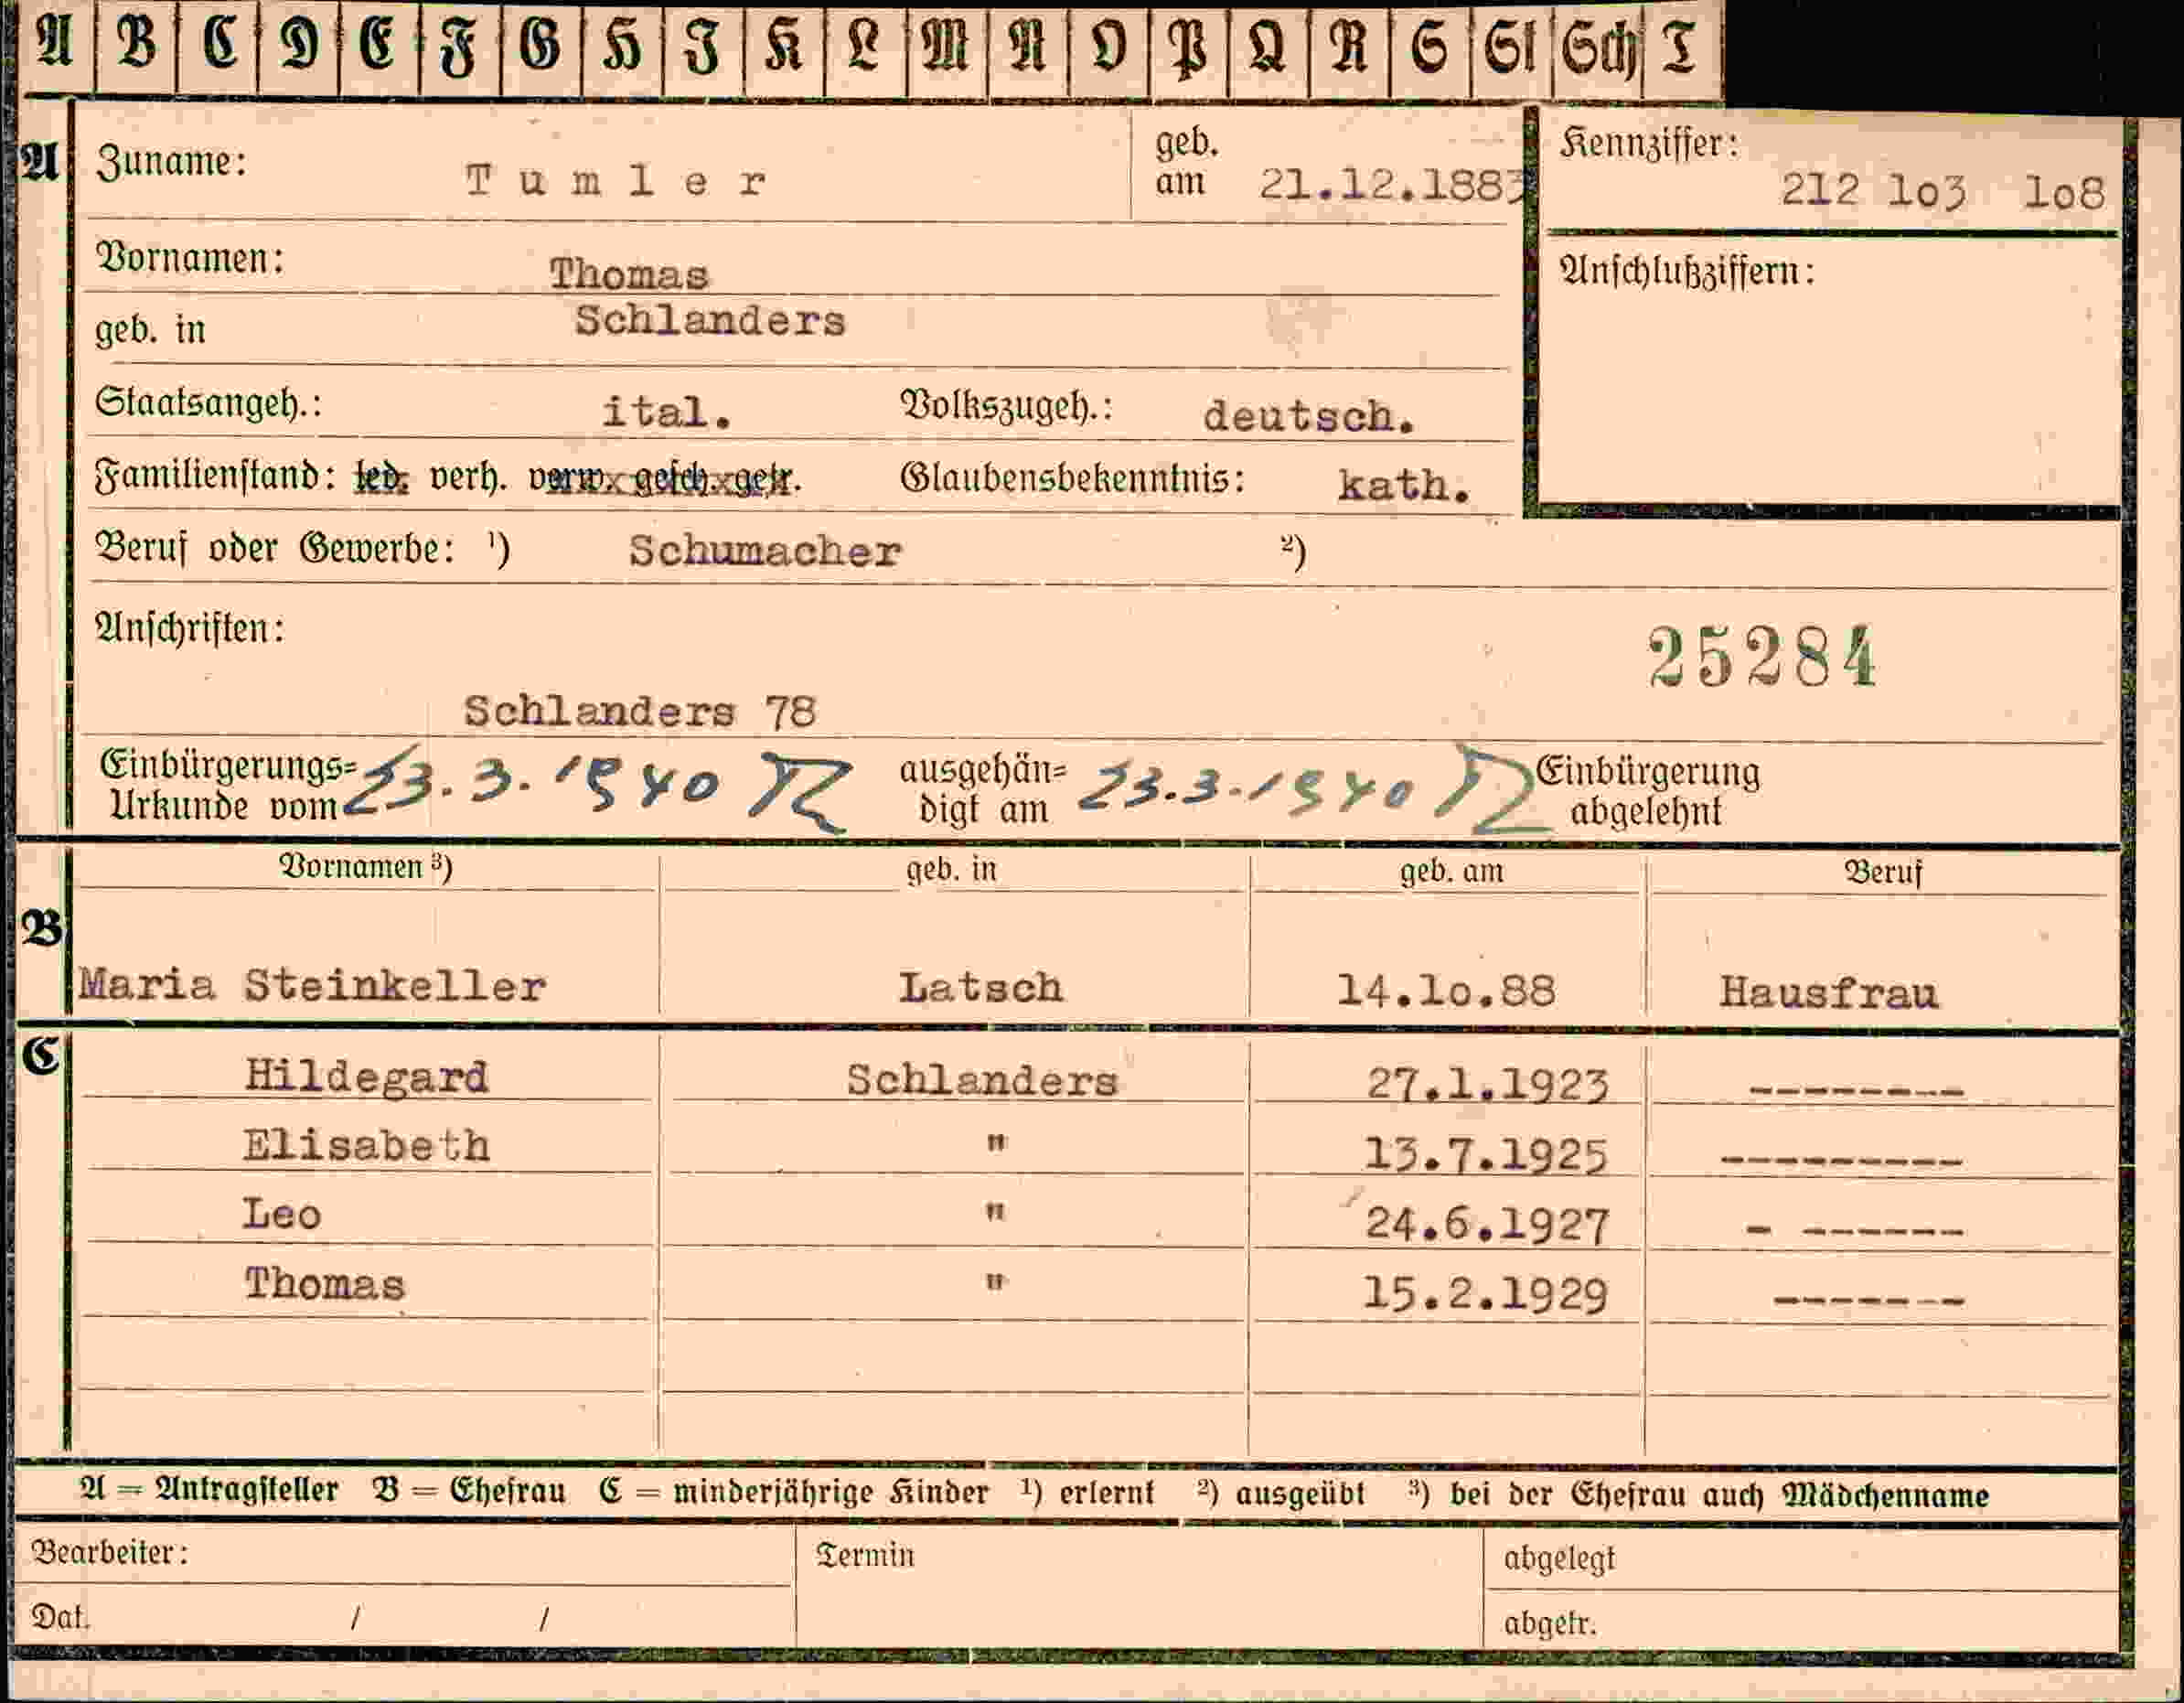 A B C D E F G H I K L M N O P Q R S St Sch T
A Zuname: Tumler geb. am 21.12.1883 Kennziffer: 212 lo3 lo8
Vornamen: Thomas Anschlußziffern:
geb. in Schlanders
Staatsangeh.: ital. Volkszugeh.: deutsch.
Familienstand: led. verh. verw. gesch. getr. Glaubensbekenntnis: kath.
Beruf oder Gewerbe: ¹) Schumacher ²)
Anschriften: 25284
Schlanders 78
Einbürgerungs= Urkunde vom 23.3.1940 ausgehän= digt am 23.3.1940 Einbürgerung abgelehnt
Vornamen ³) geb. in geb. am Beruf
B
Maria Steinkeller Latsch 14.lo.88 Hausfrau
C Hildegard Schlanders 27.1.1923 --------
Elisabeth " 13.7.1925 ---------
Leo " 24.6.1927 - ------
Thomas " 15.2.1929 -------
A = Antragsteller B = Ehefrau C = minderjährige Kinder ¹) erlernt ²) ausgeübt ³) bei der Ehefrau auch Mädchenname
Bearbeiter: Termin abgelegt
Dat. / / abgetr.